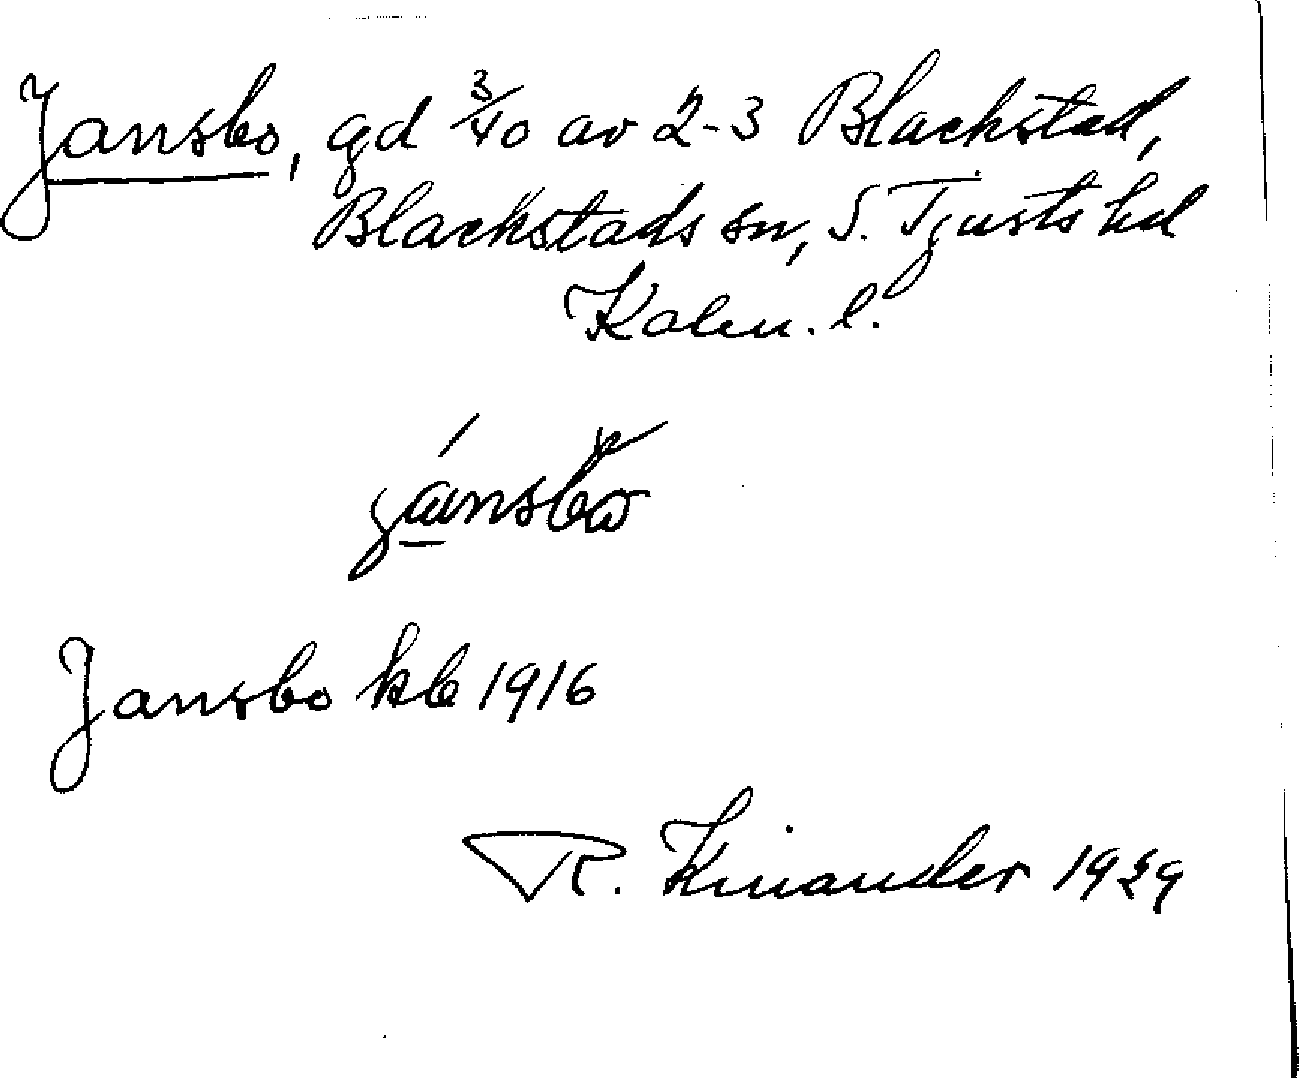 Jansbo, gd 3/40 av 2-3 Blackstad,
Blackstads sn, S. Tjusts hd
Kalm. l.
Jansbo kb 1916
R. Kinander 1929